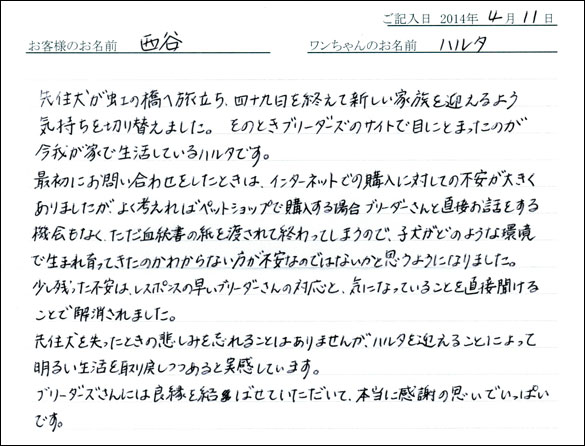 ご記入日 2014年 4月 11日
お客様のお名前 西谷 ワンちゃんのお名前 ハルタ
先住犬が虹の橋へ旅立ち、四十九日を終えて新しい家族を迎えるよう
気持ちを切り替えました。 そのときブリーダーズのサイトで目にとまったのが
今我が家で生活しているハルタです。
最初にお問い合わせをしたときは、インターネットでの購入に対しての不安が大きく
ありましたが、よく考えればペットショップで購入する場合ブリーダーさんと直接お話をする
機会もなく、ただ血統書の紙を渡されて終わってしまうので、子犬がどのような環境
で生まれ育ってきたのかわからない方が不安なのではないかと思うようになりました。
少し残った不安は、レスポンスの早いブリーダーさんの対応と、気になっていることを直接聞ける
ことで解消されました。
先住犬を失ったときの悲しみを忘れることはありませんが、ハルタを迎えることによって
明るい生活を取り戻しつつあると実感しています。
ブリーダーズさんには良縁を結ばせていただいて、本当に感謝の思いでいっぱい
です。